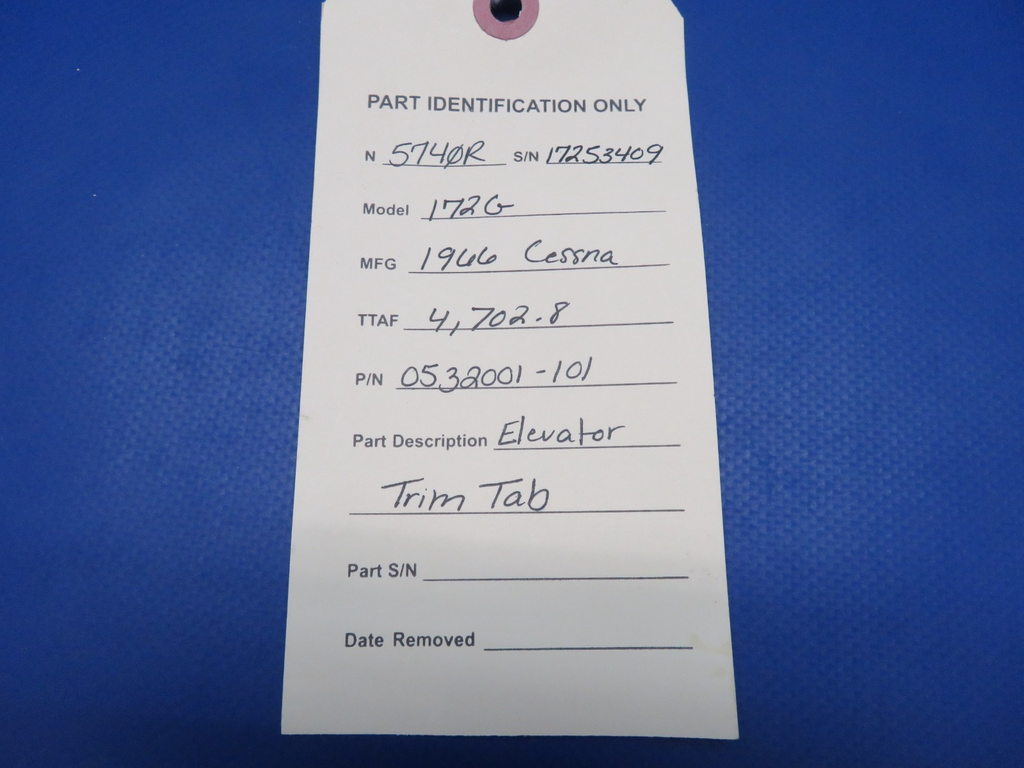 PART IDENTIFICATION ONLY
N 5740R S/N 17253409
Model 172G
MFG 1966 Cessna
TTAF 4,702.8
P/N 0532001-101
Part Description Elevator
Trim Tab
Part S/N
Date Removed